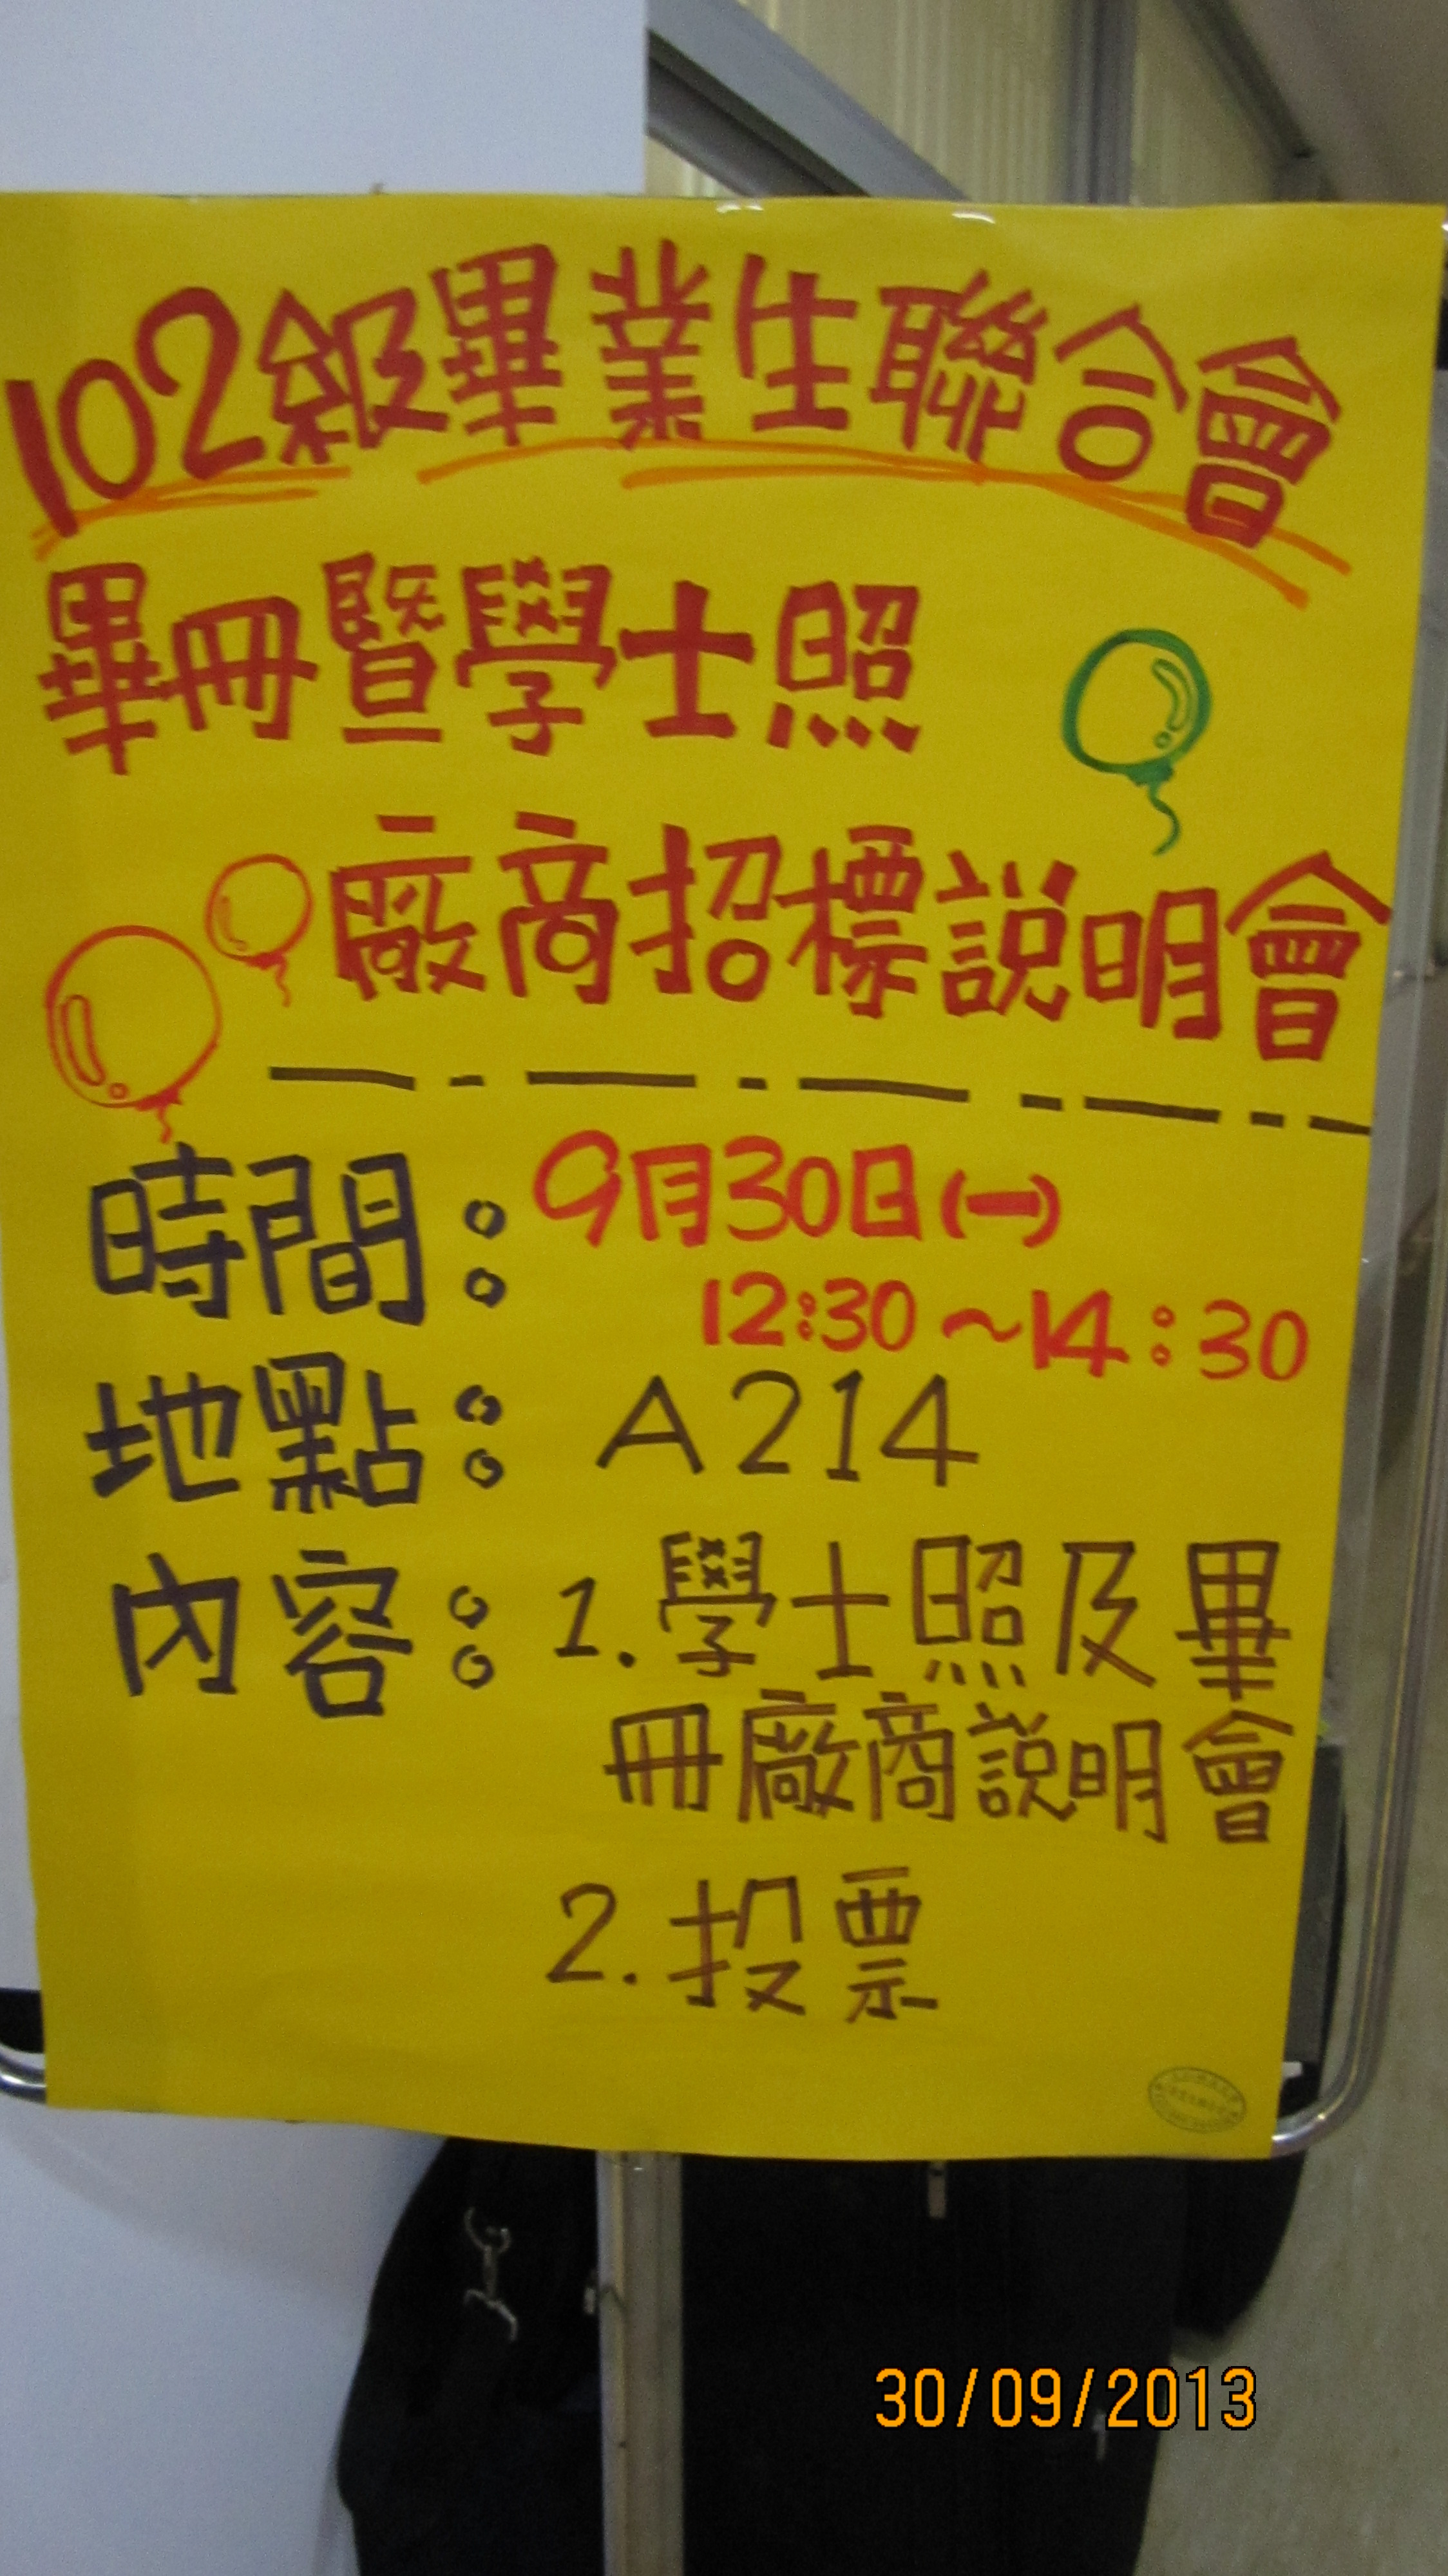 102級畢業生聯合會
畢冊暨學士照
廠商招標說明會
時間：9月30日(一)
12:30~14:30
地點：A214
內容：1.學士照及畢
冊廠商說明會
2.投票
30/09/2013